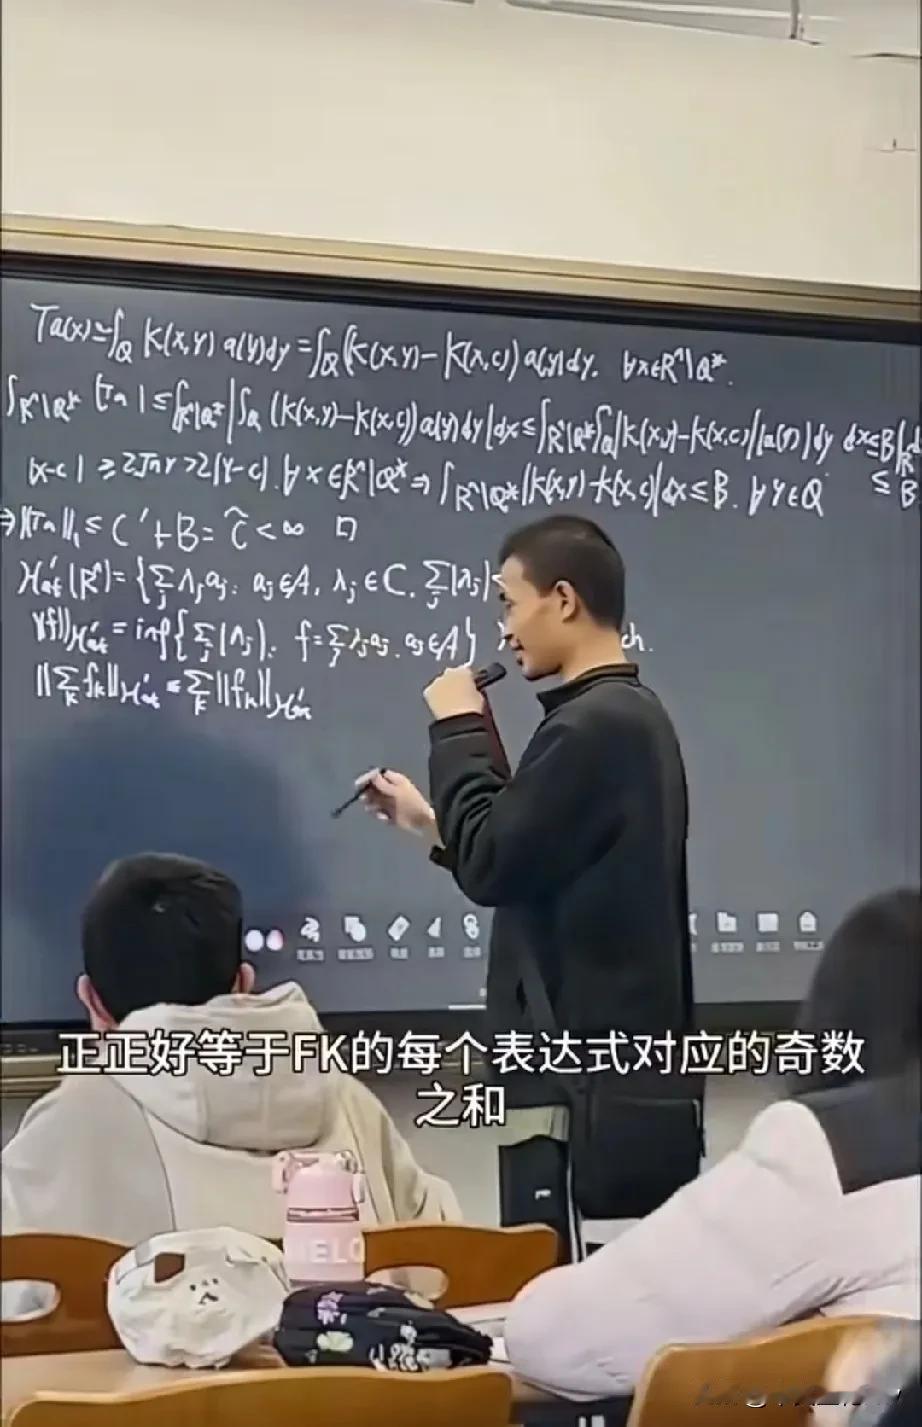 Ta(x)=∫_Q K(x,y) a(y)dy =∫_Q (K(x,y)- K(x,c)) a(y)dy. ∀x∈R^n\Q*.
∫_{R^n\Q*} |Ta| ≤ ∫_{R^n\Q*} |∫_Q (K(x,y)-K(x,c)) a(y)dy| dx ≤ ∫_{R^n\Q*} ∫_Q |K(x,y)-K(x,c)| |a(y)| dy dx ≤ B
|x-c| ≥ 2√n r > 2|y-c|. ∀x∈R^n\Q* ⇒ ∫_{R^n\Q*} |K(x,y)-K(x,c)| dx ≤ B. ∀y∈Q ≤ B
⇒ ||Ta||_1 ≤ C'+B = C̃ < ∞ □
H^1_{at}(R^n) = {∑_j λ_j a_j: a_j∈A, λ_j∈C, ∑_j |λ_j|<
||f||_{H^1_{at}} = inf{∑_j |λ_j|: f=∑_j λ_j a_j, a_j∈A} ch.
||∑_k f_k||_{H^1_{at}} ≤ ∑_k ||f_k||_{H^1_{at}}
正正好等于FK的每个表达式对应的奇数
之和
ELO